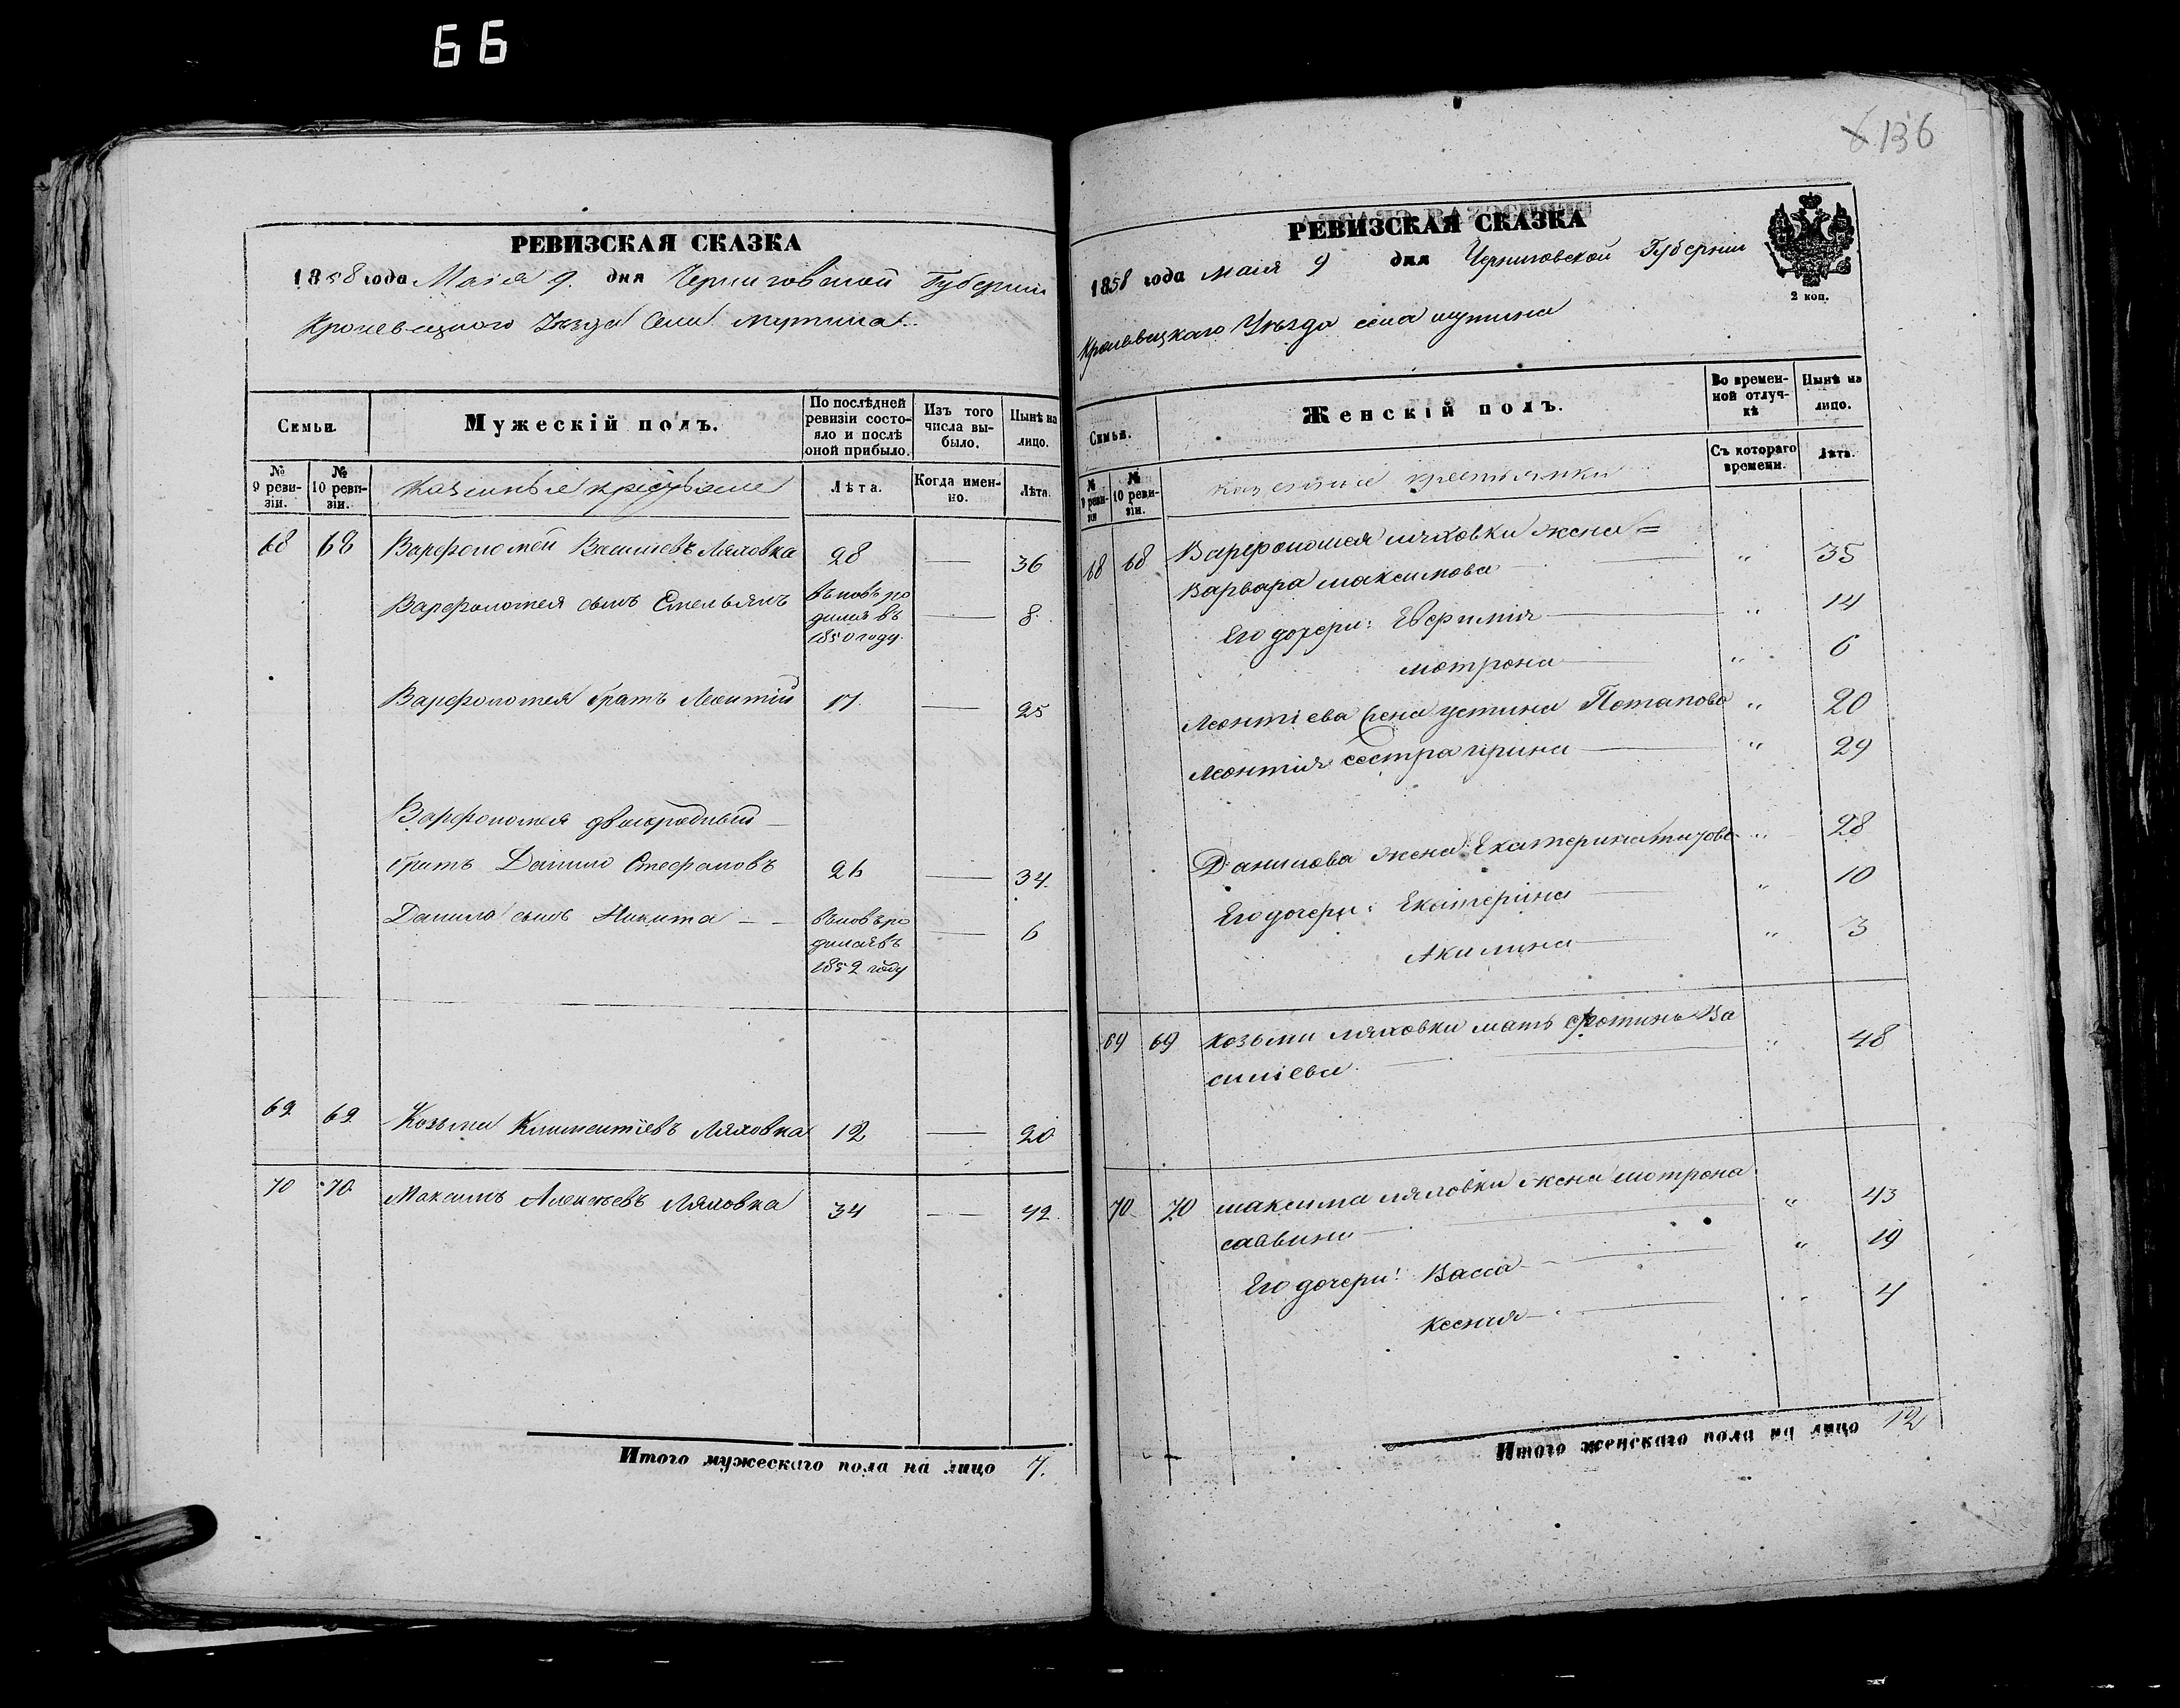 66
РЕВИЗСКАЯ СКАЗКА
1858 года Маія 9. дня Черниговской Губерніи
Кролевецкого Уезда Села Мутина
Семьи.
Мужескій полъ.
По послѣдней ревизіи состояло и послѣ оной прибыло.
Изъ того числа выбыло.
Нынѣ на лицо.
№ 9 ревизіи.
№ 10 ревизіи.
Казенные крестьяне
Лѣта.
Когда именно.
Лѣта.
68 68 Варфоломей Василіевъ Ляховка 28 — 36
Варфоломея сынъ Емельянъ вновь родился въ 1850 году. — 8.
Варфоломея братъ Леонтій 17. — 25
Варфоломея двоюродный —
братъ Данило Стефановъ 26 — 34.
Данила сынъ Никита — — вновь родился въ 1852 году — 6
69 69 Козьма Климентіевъ Ляховка 12 — 20
70 70 Максимъ Алексѣевъ Ляховка 34 — 42.
Итого мужескаго пола на лицо 7.
6 136
РЕВИЗСКАЯ СКАЗКА
1858 года маія 9 дня Черниговской Губерніи
2 коп.
Кролевецкаго Уѣзда села мутина
Семьи.
Женскій полъ.
Во временной отлучкѣ
Нынѣ на лицо.
№ 9 ревизіи
№ 10 ревизіи.
казенные крестьянки
Съ котораго времени.
Лѣта.
68 68 Варфоломея ляховки жена =
Варвара максимова — " 35
Его дочери: Евфимія — " 14
мотрона — " 6
Леонтіева жена устина Потапова " 20
Леонтія сестра ирина — " 29
Данилова жена Екатерина " 28
Его дочери: Екатерина — " 10
Акилина — " 3
69 69 козьмы ляховки мать фотина Ва
силіева — " 48
70 70 максима ляховки жена мотрона
саввина — " 43
Его дочери: Васса — " 19
ксенія — " 4
Итого женскаго пола на лицо 12